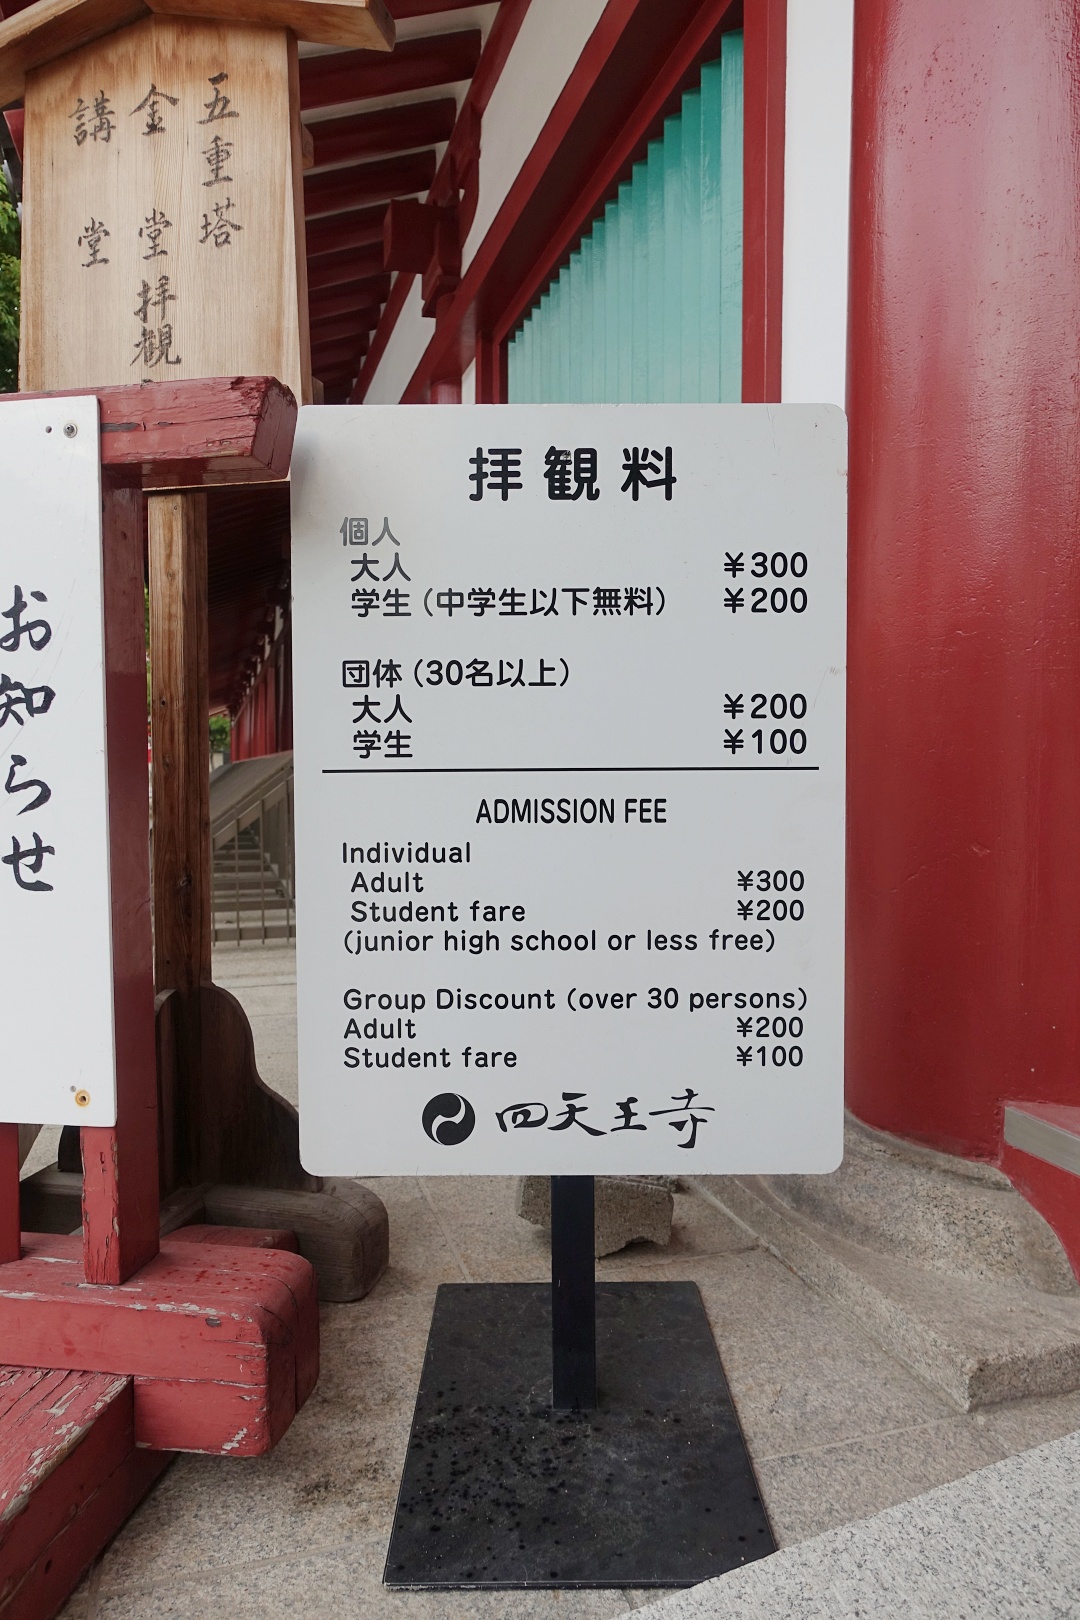 五重塔
金堂拝観
講堂
お知らせ
拝観料
個人
大人 ¥300
学生（中学生以下無料） ¥200
団体（30名以上）
大人 ¥200
学生 ¥100
ADMISSION FEE
Individual
Adult ¥300
Student fare ¥200
(junior high school or less free)
Group Discount (over 30 persons)
Adult ¥200
Student fare ¥100
四天王寺